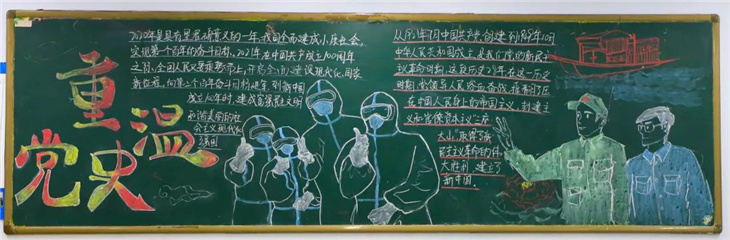 重温
党史
2020年是具有里程碑意义的一年,我国全面建成小康社会,
实现第一个百年奋斗目标,2021年在中国共产党成立100周年
之际,全国人民乘势而上,开启全面建设现代化国家
新征程,向第二个百年奋斗目标进军,到新中国
成立100年时,建成富强民主文明
和谐美丽的社
会主义现代化
强国
从1921年7月中国共产党创建到1949年10月
中华人民共和国成立,是我们党的新民主
主义革命时期,这段历史28年,在这一历史
时期,党领导人民浴血奋战,推翻了压
在中国人民身上的帝国主义,封建主
义和官僚资本主义"三座
大山",取得了新
民主主义革命的伟
大胜利,建立了
新中国。